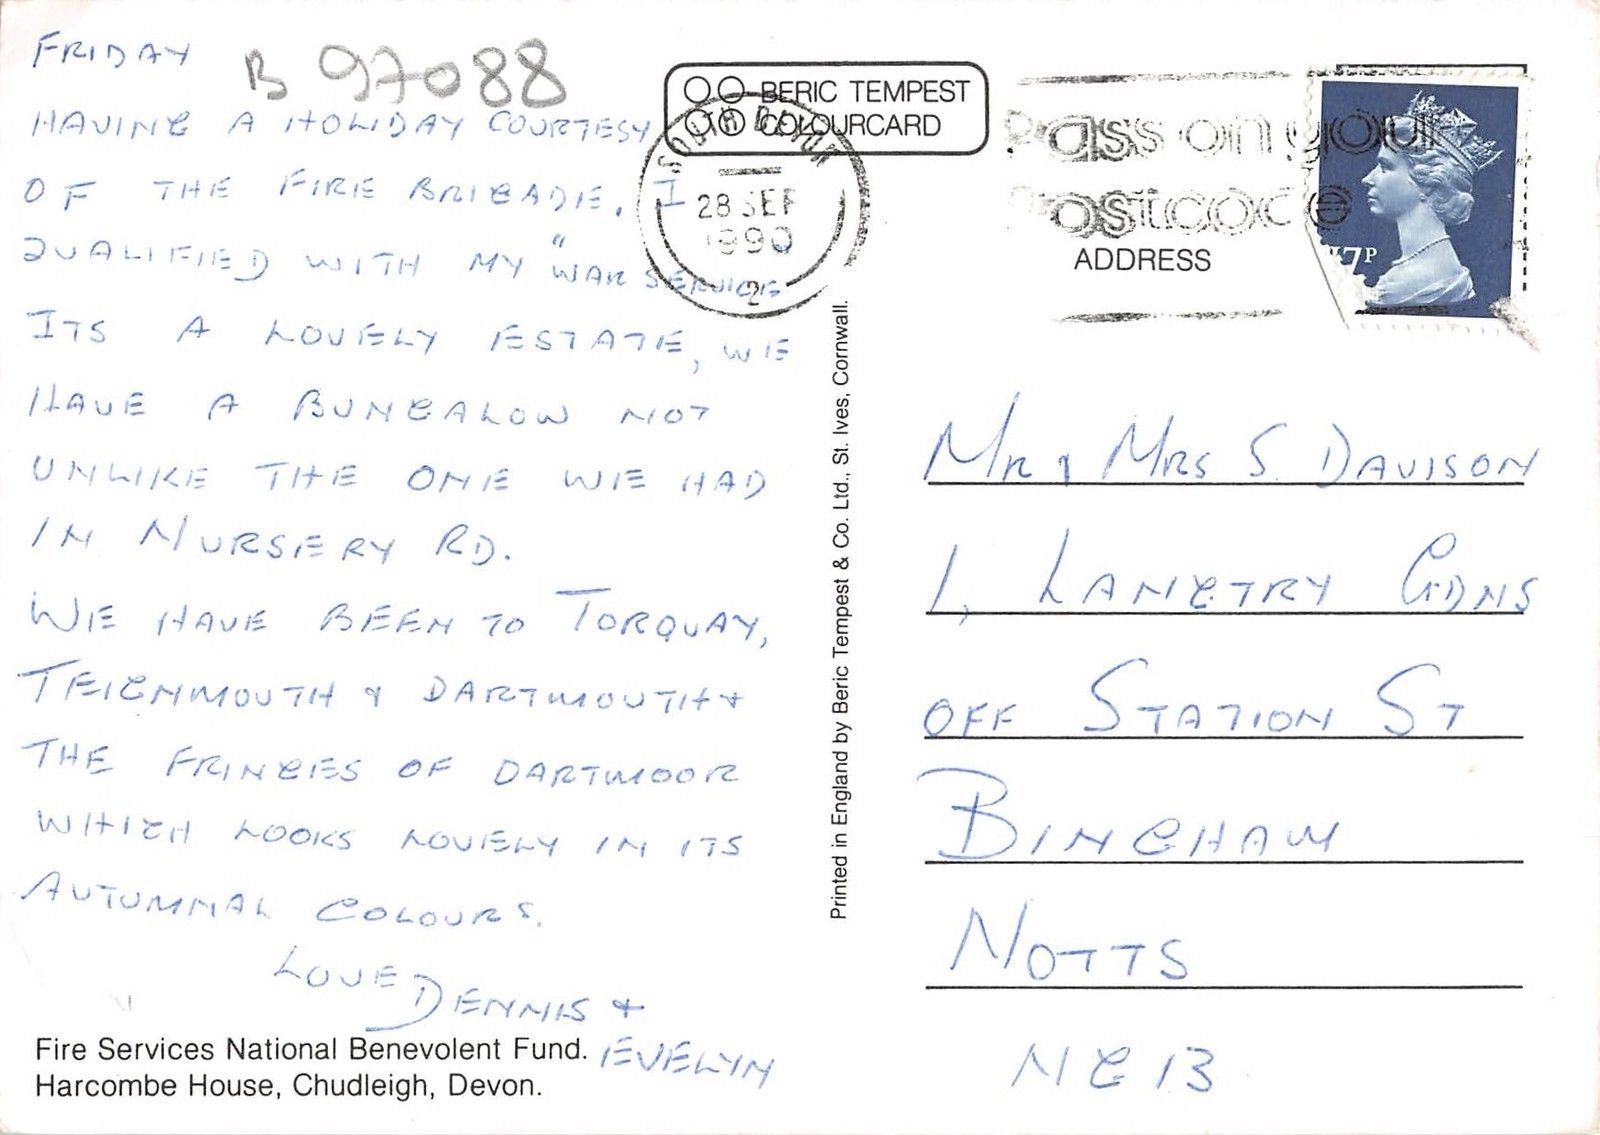 FRIDAY
B 97088
HAVING A HOLIDAY COURTESY
OF THE FIRE BRIGADE. I
QUALIFIED WITH MY "WAR SERVICE
ITS A LOVELY ESTATE, WE
HAVE A BUNGALOW NOT
UNLIKE THE ONE WE HAD
IN NURSERY RD.
WE HAVE BEEN TO TORQUAY,
TEIGNMOUTH & DARTMOUTH &
THE FRINGES OF DARTMOOR
WHICH LOOKS LOVELY IN ITS
AUTUMNAL COLOURS.
LOVE
DENNIS &
EVELYN
Fire Services National Benevolent Fund.
Harcombe House, Chudleigh, Devon.
BERIC TEMPEST
COLOURCARD
SOUTH DEVON
28 SEP
1990
2
Printed in England by Beric Tempest & Co. Ltd., St. Ives, Cornwall.
Pass on your
Postcode
17P
ADDRESS
MR & MRS S. DAVISON
1, LANGTRY GDNS
OFF STATION ST
BINGHAM
NOTTS
NG13